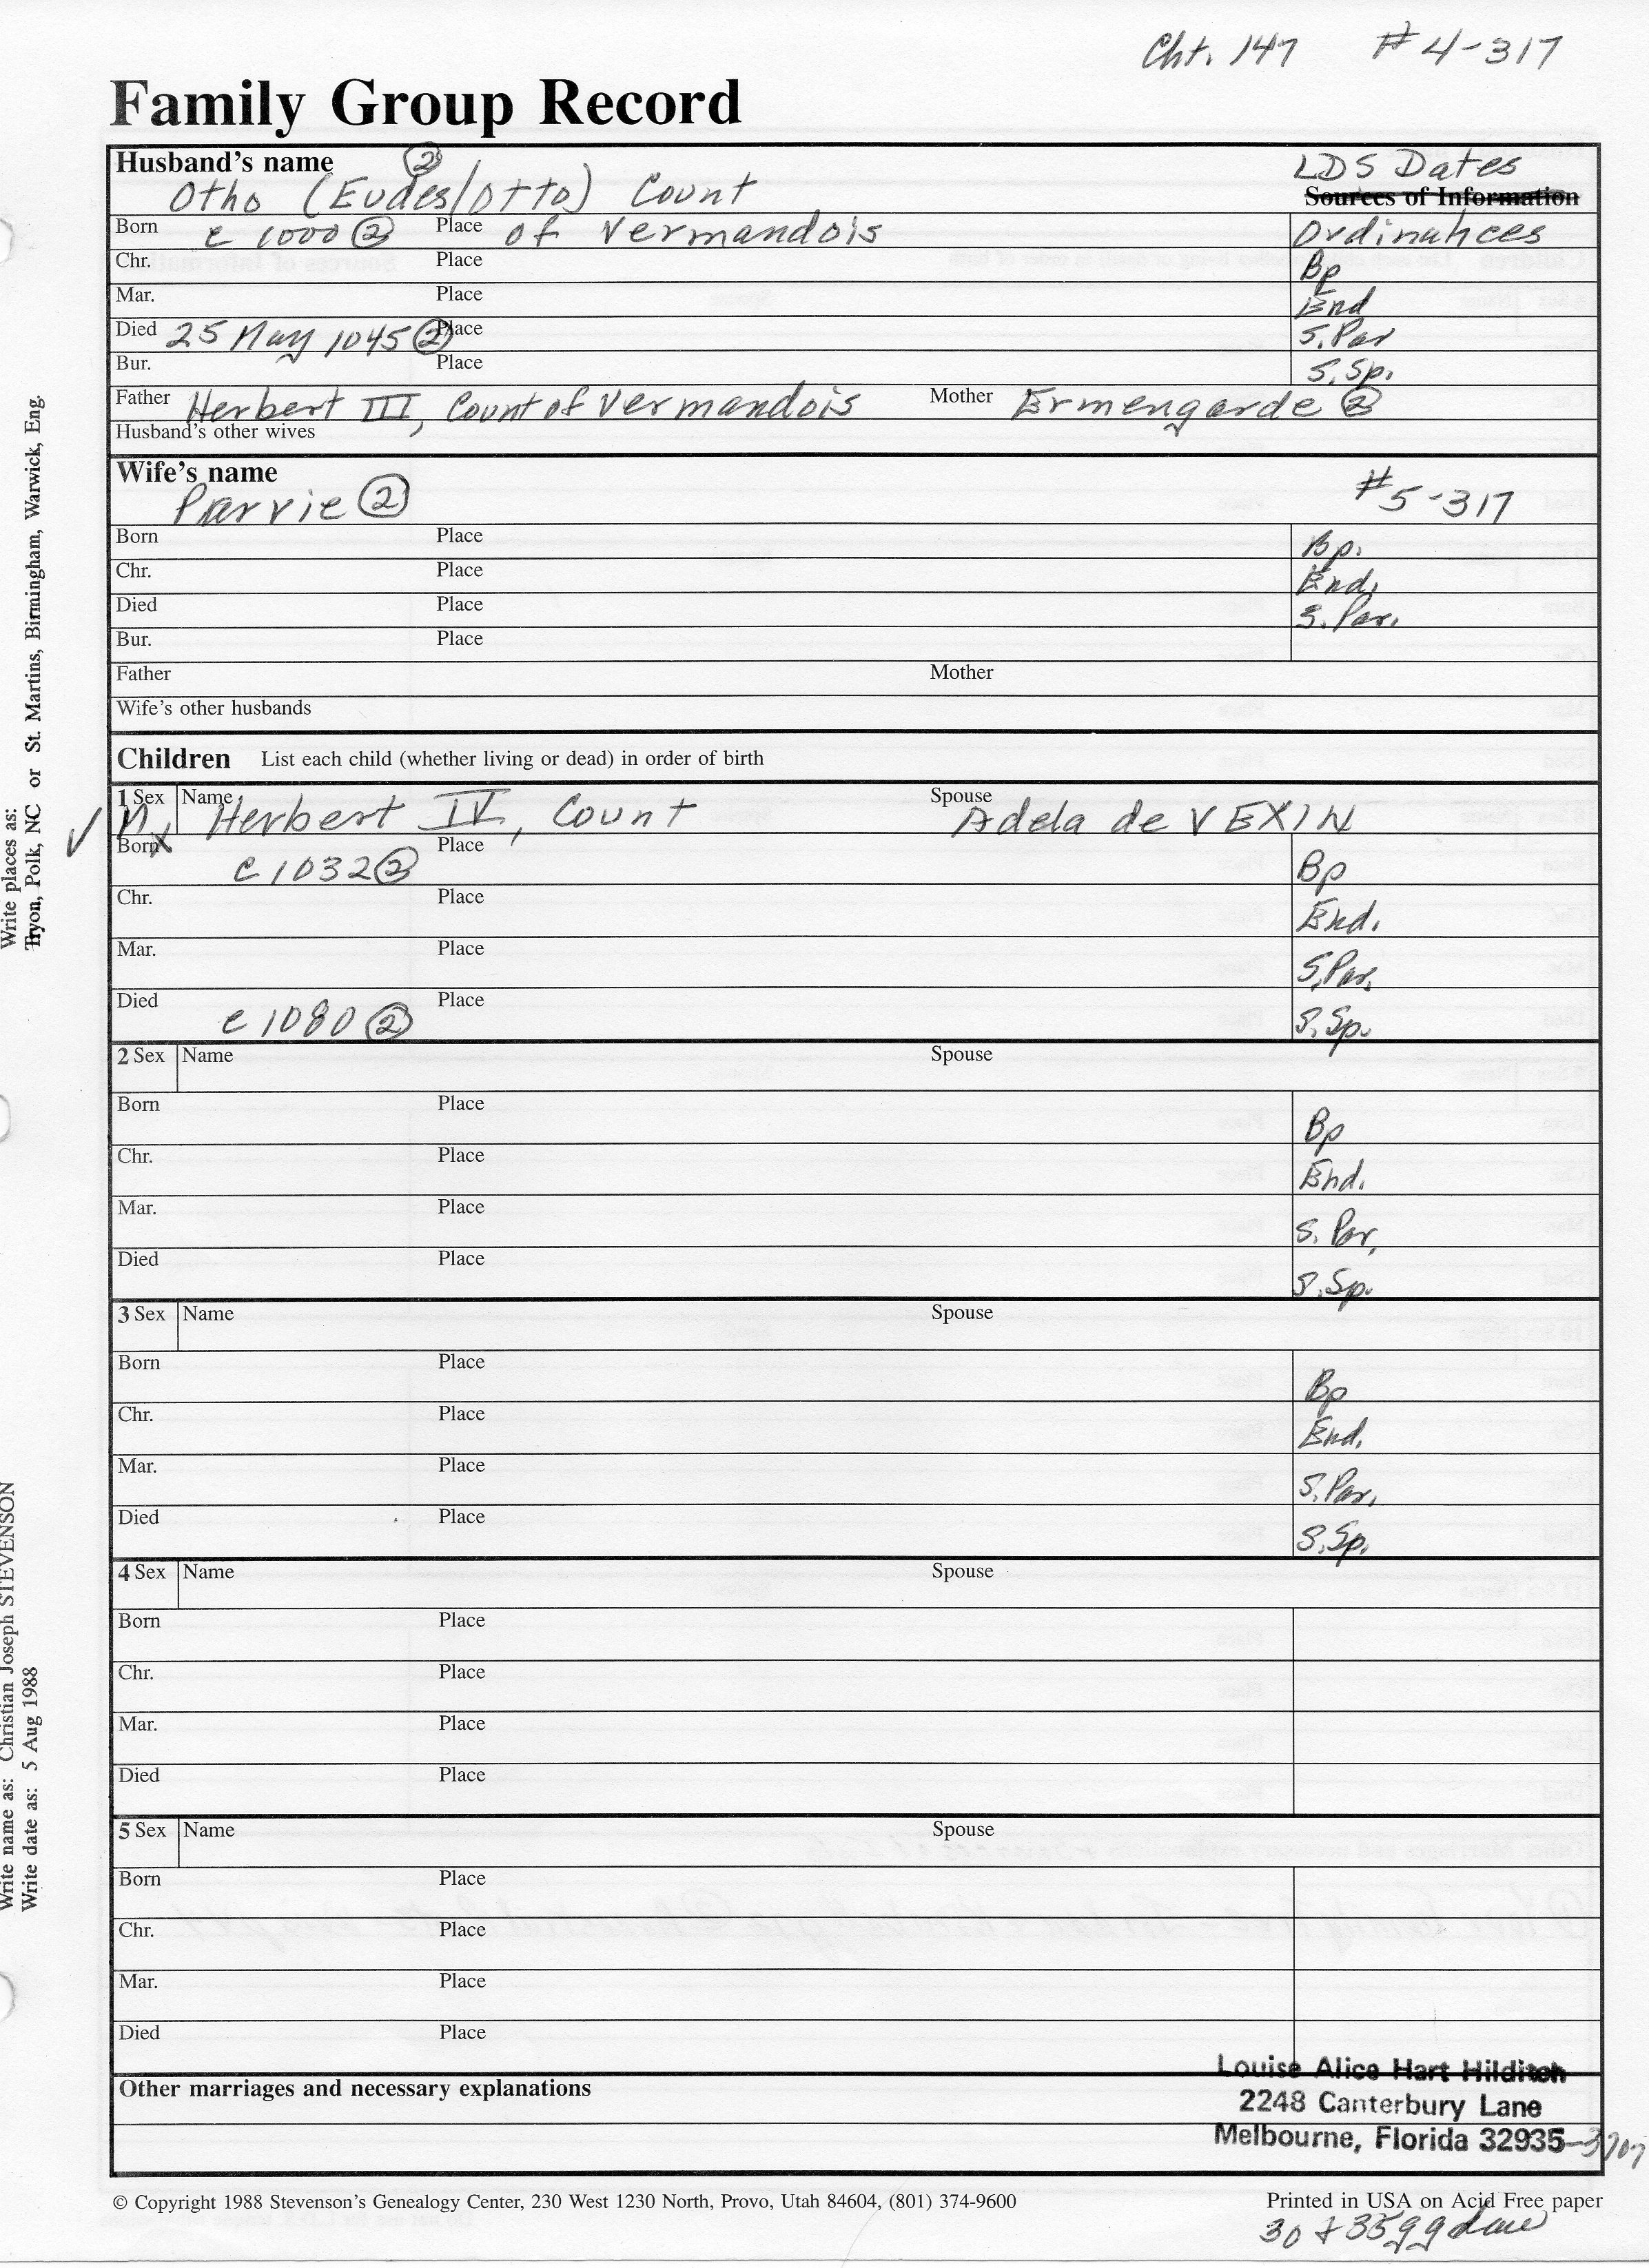 Cht. 147 #4-317
Family Group Record
Husband's name ② LDS Dates
Otho (Eudes/Otto) Count Sources of Information
Born c 1000 ② Place of Vermandois Ordinances
Chr. Place Bp
Mar. Place End
Died 25 May 1045 ② Place S. Par
Bur. Place S. Sp.
Father Herbert III, Count of Vermandois Mother Ermengarde ②
Husband's other wives
Wife's name
Parvie ② #5-317
Born Place Bp.
Chr. Place End.
Died Place S. Par.
Bur. Place
Father Mother
Wife's other husbands
Children List each child (whether living or dead) in order of birth
1 Sex Name Spouse
√ M x Herbert IV, Count Adela de VEXIN
Born c 1032 ② Place Bp
Chr. Place End.
Mar. Place S. Par.
Died c 1080 ② Place S. Sp.
2 Sex Name Spouse
Born Place Bp
Chr. Place End.
Mar. Place S. Par.
Died Place S. Sp.
3 Sex Name Spouse
Born Place Bp
Chr. Place End.
Mar. Place S. Par.
Died Place S. Sp.
4 Sex Name Spouse
Born Place
Chr. Place
Mar. Place
Died Place
5 Sex Name Spouse
Born Place
Chr. Place
Mar. Place
Died Place
Other marriages and necessary explanations
Louise Alice Hart Hilditch
2248 Canterbury Lane
Melbourne, Florida 32935-3707
© Copyright 1988 Stevenson's Genealogy Center, 230 West 1230 North, Provo, Utah 84604, (801) 374-9600 Printed in USA on Acid Free paper
30 & 35 gg
Write places as:
Tryon, Polk, NC or St. Martins, Birmingham, Warwick, Eng.
Write name as: Christian Joseph STEVENSON
Write date as: 5 Aug 1988